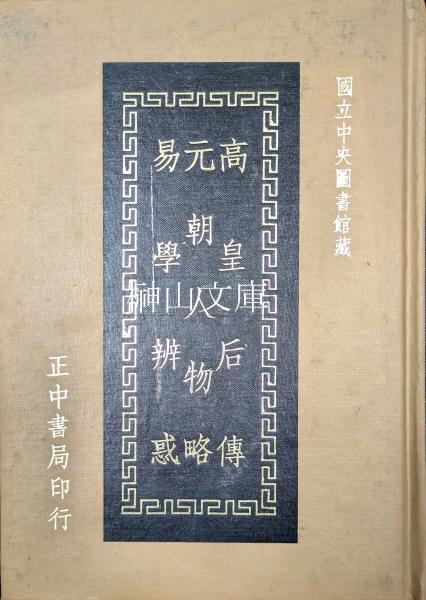 國立中央圖書館藏
高皇后傳
元朝人物略
易學辨惑
正中書局印行
榊山文庫